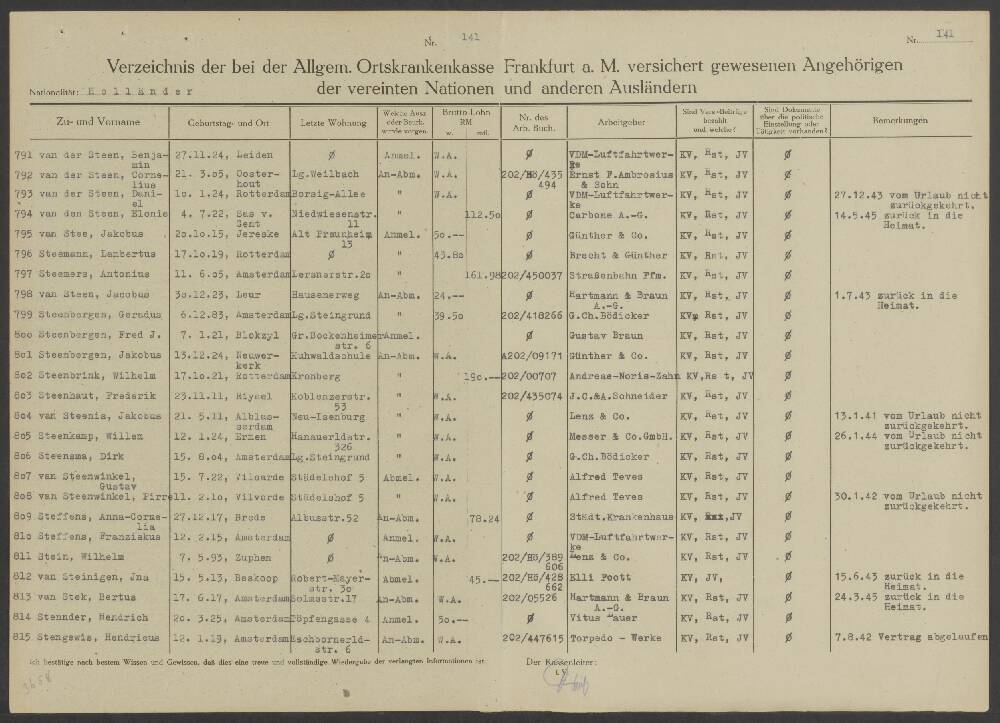 Nr. 141
Nr. 141
Verzeichnis der bei der Allgem. Ortskrankenkasse Frankfurt a. M. versichert gewesenen Angehörigen
Nationalität: Holländer der vereinten Nationen und anderen Ausländern
Zu- und Vorname | Geburtstag- und Ort | Letzte Wohnung | Welche Ausz oder Beurk. wurde vorgen. | Brutto-Lohn RM w. mtl. | Nr. des Arb. Buch. | Arbeitgeber | Sind Vers-Beiträge bezahlt und welche? | Sind Dokumente über die politische Einstellung oder Tätigkeit vorhanden? | Bemerkungen
791 van der Steen, Benja- 27.11.24, Leiden Ø Anmel. W.A. Ø VDM-Luftfahrtwer- KV, Rst, JV Ø
min ke
792 van der Steen, Corne- 21. 3.05, Ooster- Lg.Weilbach An-Abm. W.A. 202/Hö/435 Ernst F.Ambrosius KV, Rst, JV Ø
lius hout 494 & Sohn
793 van der Steen, Dani- 1o. 1.24, Rotterdam Borsig-Allee " W.A. Ø VDM-Luftfahrtwer- KV, Rst, JV Ø 27.12.43 vom Urlaub nicht
el ke zurückgekehrt.
794 van den Steen, Elonie 4. 7.22, Sas v. Niedwiesenstr. " 112.5o Ø Carbone A.-G. KV, Rst, JV Ø 14.5.45 zurück in die
Gent 11 Heimat.
795 van Stee, Jakobus 2o.1o.15, Jereske Alt Praunheim Anmel. 5o.-- Ø Günther & Co. KV, Rst, JV Ø
13
796 Steemann, Lambertus 17.1o.19, Rotterdam Ø " 43.8o Ø Brecht & Günther KV, Rst, JV Ø
797 Steemers, Antonius 11. 6.o5, Amsterdam Lersnerstr.2o " 161.98 202/450037 Straßenbahn Ffm. KV, Rst, JV Ø
798 van Steen, Jacobus 3o.12.23, Leur Hausenerweg An-Abm. 24.-- Ø Hartmann & Braun KV, Rst, JV Ø 1.7.43 zurück in die
A.-G. Heimat.
799 Steenbergen, Geradus 6.12.83, Amsterdam Lg.Steingrund " 39.5o 202/418266 G.Ch.Bödicker KV, Rst, JV Ø
8oo Steenbergen, Fred J. 7. 1.21, Blokzyl Gr.Bockenheimer Anmel. Ø Gustav Braun KV, Rst, JV Ø
str. 6
8o1 Steenbergen, Jakobus 13.12.24, Neuwer- Kuhwaldschule An-Abm. W.A. A202/09171 Günther & Co. KV, Rst, JV Ø
kerk
8o2 Steenbrink, Wilhelm 17.1o.21, Rotterdam Kronberg " 19o.-- 202/00707 Andreae-Noris-Zahn KV,Rst, JV Ø
8o3 Steenhaut, Frederik 23.11.11, Riysel Koblenzerstr. " W.A. 202/435074 J.C.&A.Schneider KV, Rst, JV Ø
53
8o4 van Steenis, Jakobus 21. 5.11, Alblas- Neu-Isenburg " W.A. Ø Lenz & Co. KV, Rst, JV Ø 13.1.41 vom Urlaub nicht
serdam zurückgekehrt.
8o5 Steenkamp, Willem 12. 1.24, Ermen Hanauerldstr. " W.A. Ø Messer & Co.GmbH. KV, Rst, JV Ø 26.1.44 vom Urlaub nicht
326 zurückgekehrt.
8o6 Steensma, Dirk 15. 8.o4, Amsterdam Lg.Steingrund " W.A. Ø G.Ch.Bödicker KV, Rst, JV Ø
8o7 van Steenwinkel, 15. 7.22, Vilvarde Städelshof 5 Abmel. W.A. Ø Alfred Teves KV, Rst, JV Ø
Gustav
8o8 van Steenwinkel, Pirre 11. 2.1o, Vilvorde Städelshof 5 " W.A. Ø Alfred Teves KV, Rst, JV Ø 30.1.42 vom Urlaub nicht
zurückgekehrt.
8o9 Steffens, Anna-Corne- 27.12.17, Breds Albusstr.52 An-Abm. 78.24 Ø Städt.Krankenhaus KV, JV Ø
lia
81o Steffens, Franziskus 12. 2.15, Amsterdam Ø Anmel. W.A. Ø VDM-Luftfahrtwer- KV, Rst, JV Ø
ke
811 Stein, Wilhelm 7. 5.93, Zuphen Ø An-Abm. W.A. 202/Hö/389 Lenz & Co. KV, Rst, JV Ø
606
812 van Steinigen, Jna 15. 5.13, Beskoop Robert-Mayer- Abmel. 45.-- 202/Hö/428 Elli Poott KV, JV, Ø 15.6.43 zurück in die
str. 3o 662 Heimat.
813 van Stek, Bertus 17. 6.17, Amsterdam Solmsstr.17 An-Abm. W.A. 202/05526 Hartmann & Braun KV, Rst, JV Ø 24.3.45 zurück in die
A.-G. Heimat.
814 Stennder, Hendrich 2o. 3.25, Amsterdam Töpfengasse 4 Anmel. 5o.-- Ø Vitus Bauer KV, Rst, JV Ø
815 Stengewis, Hendricus 12. 1.19, Amsterdam Eschbornerld- An-Abm. W.A. 202/447615 Torpedo - Werke KV, Rst, JV Ø 7.8.42 Vertrag abgelaufen
str. 6
Ich bestätige nach bestem Wissen und Gewissen, daß dies eine treue und vollständige Wiedergabe der verlangten Informationen ist. Der Kassenleiter: